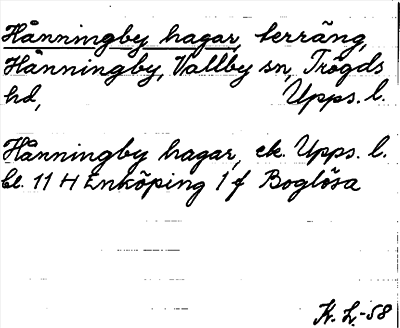 Hånningby hagar, terräng,
Hånningby, Vallby sn, Trögds
hd, Upps. l.
Hånningby hagar, ek. Upps. l.
bl. 11 H Enköping 1 f Boglösa
K. L. -58